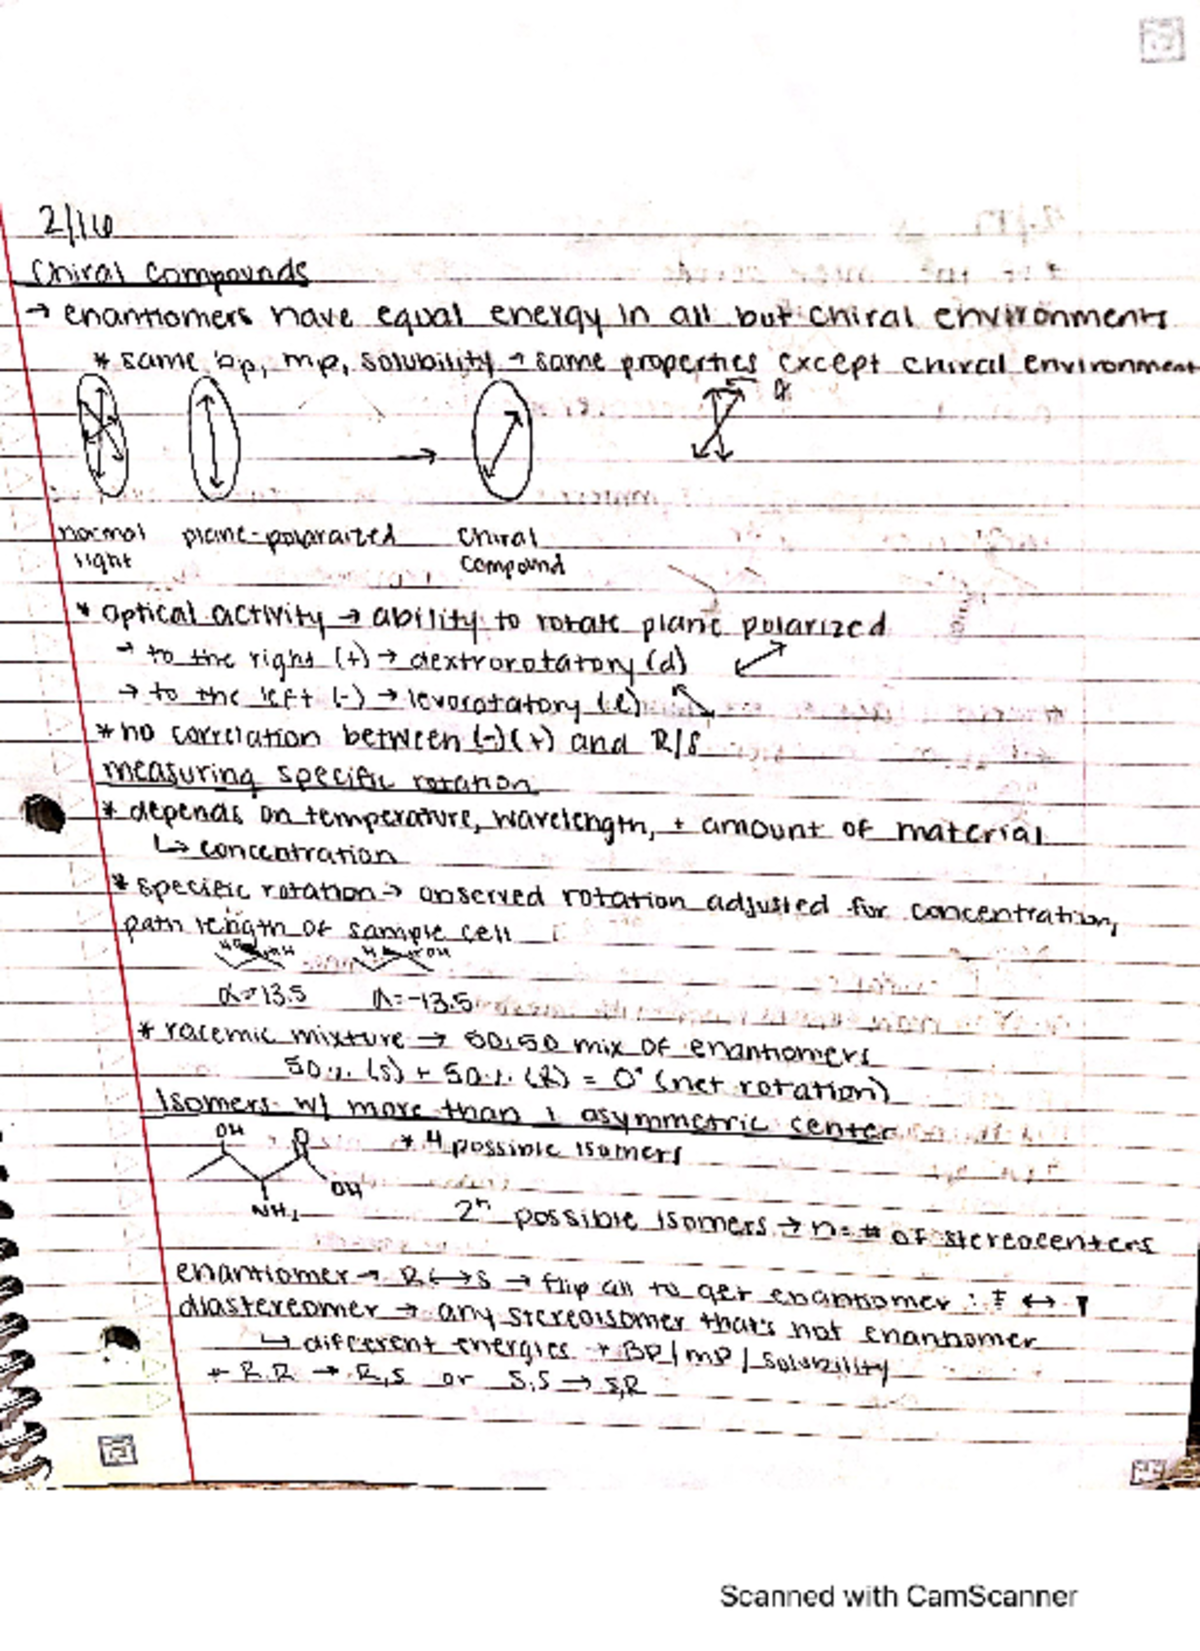 2/16
Chiral Compounds
→ enantiomers have equal energy in all but chiral environments
* same bp, mp, solubility → same properties except chiral environment
α
normal plane-polaraized chiral
light compound
* optical activity → ability to rotate plane polarized
→ to the right (+) → dextrorotatory (d)
→ to the left (-) → levorotatory (l)
* no correlation between (-)(+) and R/S
measuring specific rotation
* depends on temperature, wavelength, + amount of material
↳ concentration
* specific rotation → observed rotation adjusted for concentration,
path length of sample cell
H OH
α=13.5 α=-13.5
* racemic mixture → 50:50 mix of enantiomers
50% (S) + 50% (R) = 0° (net rotation)
Isomers w/ more than 1 asymmetric center
OH O * 4 possible isomers
OH
NH₂ 2ⁿ possible isomers → n = # of stereocenters
enantiomer → R ↔ S → flip all to get enantiomer :
diastereomer → any stereoisomer that's not enantiomer
↳ different energies + BP/MP/solubility
* R,R → R,S or S,S → S,R
Scanned with CamScanner